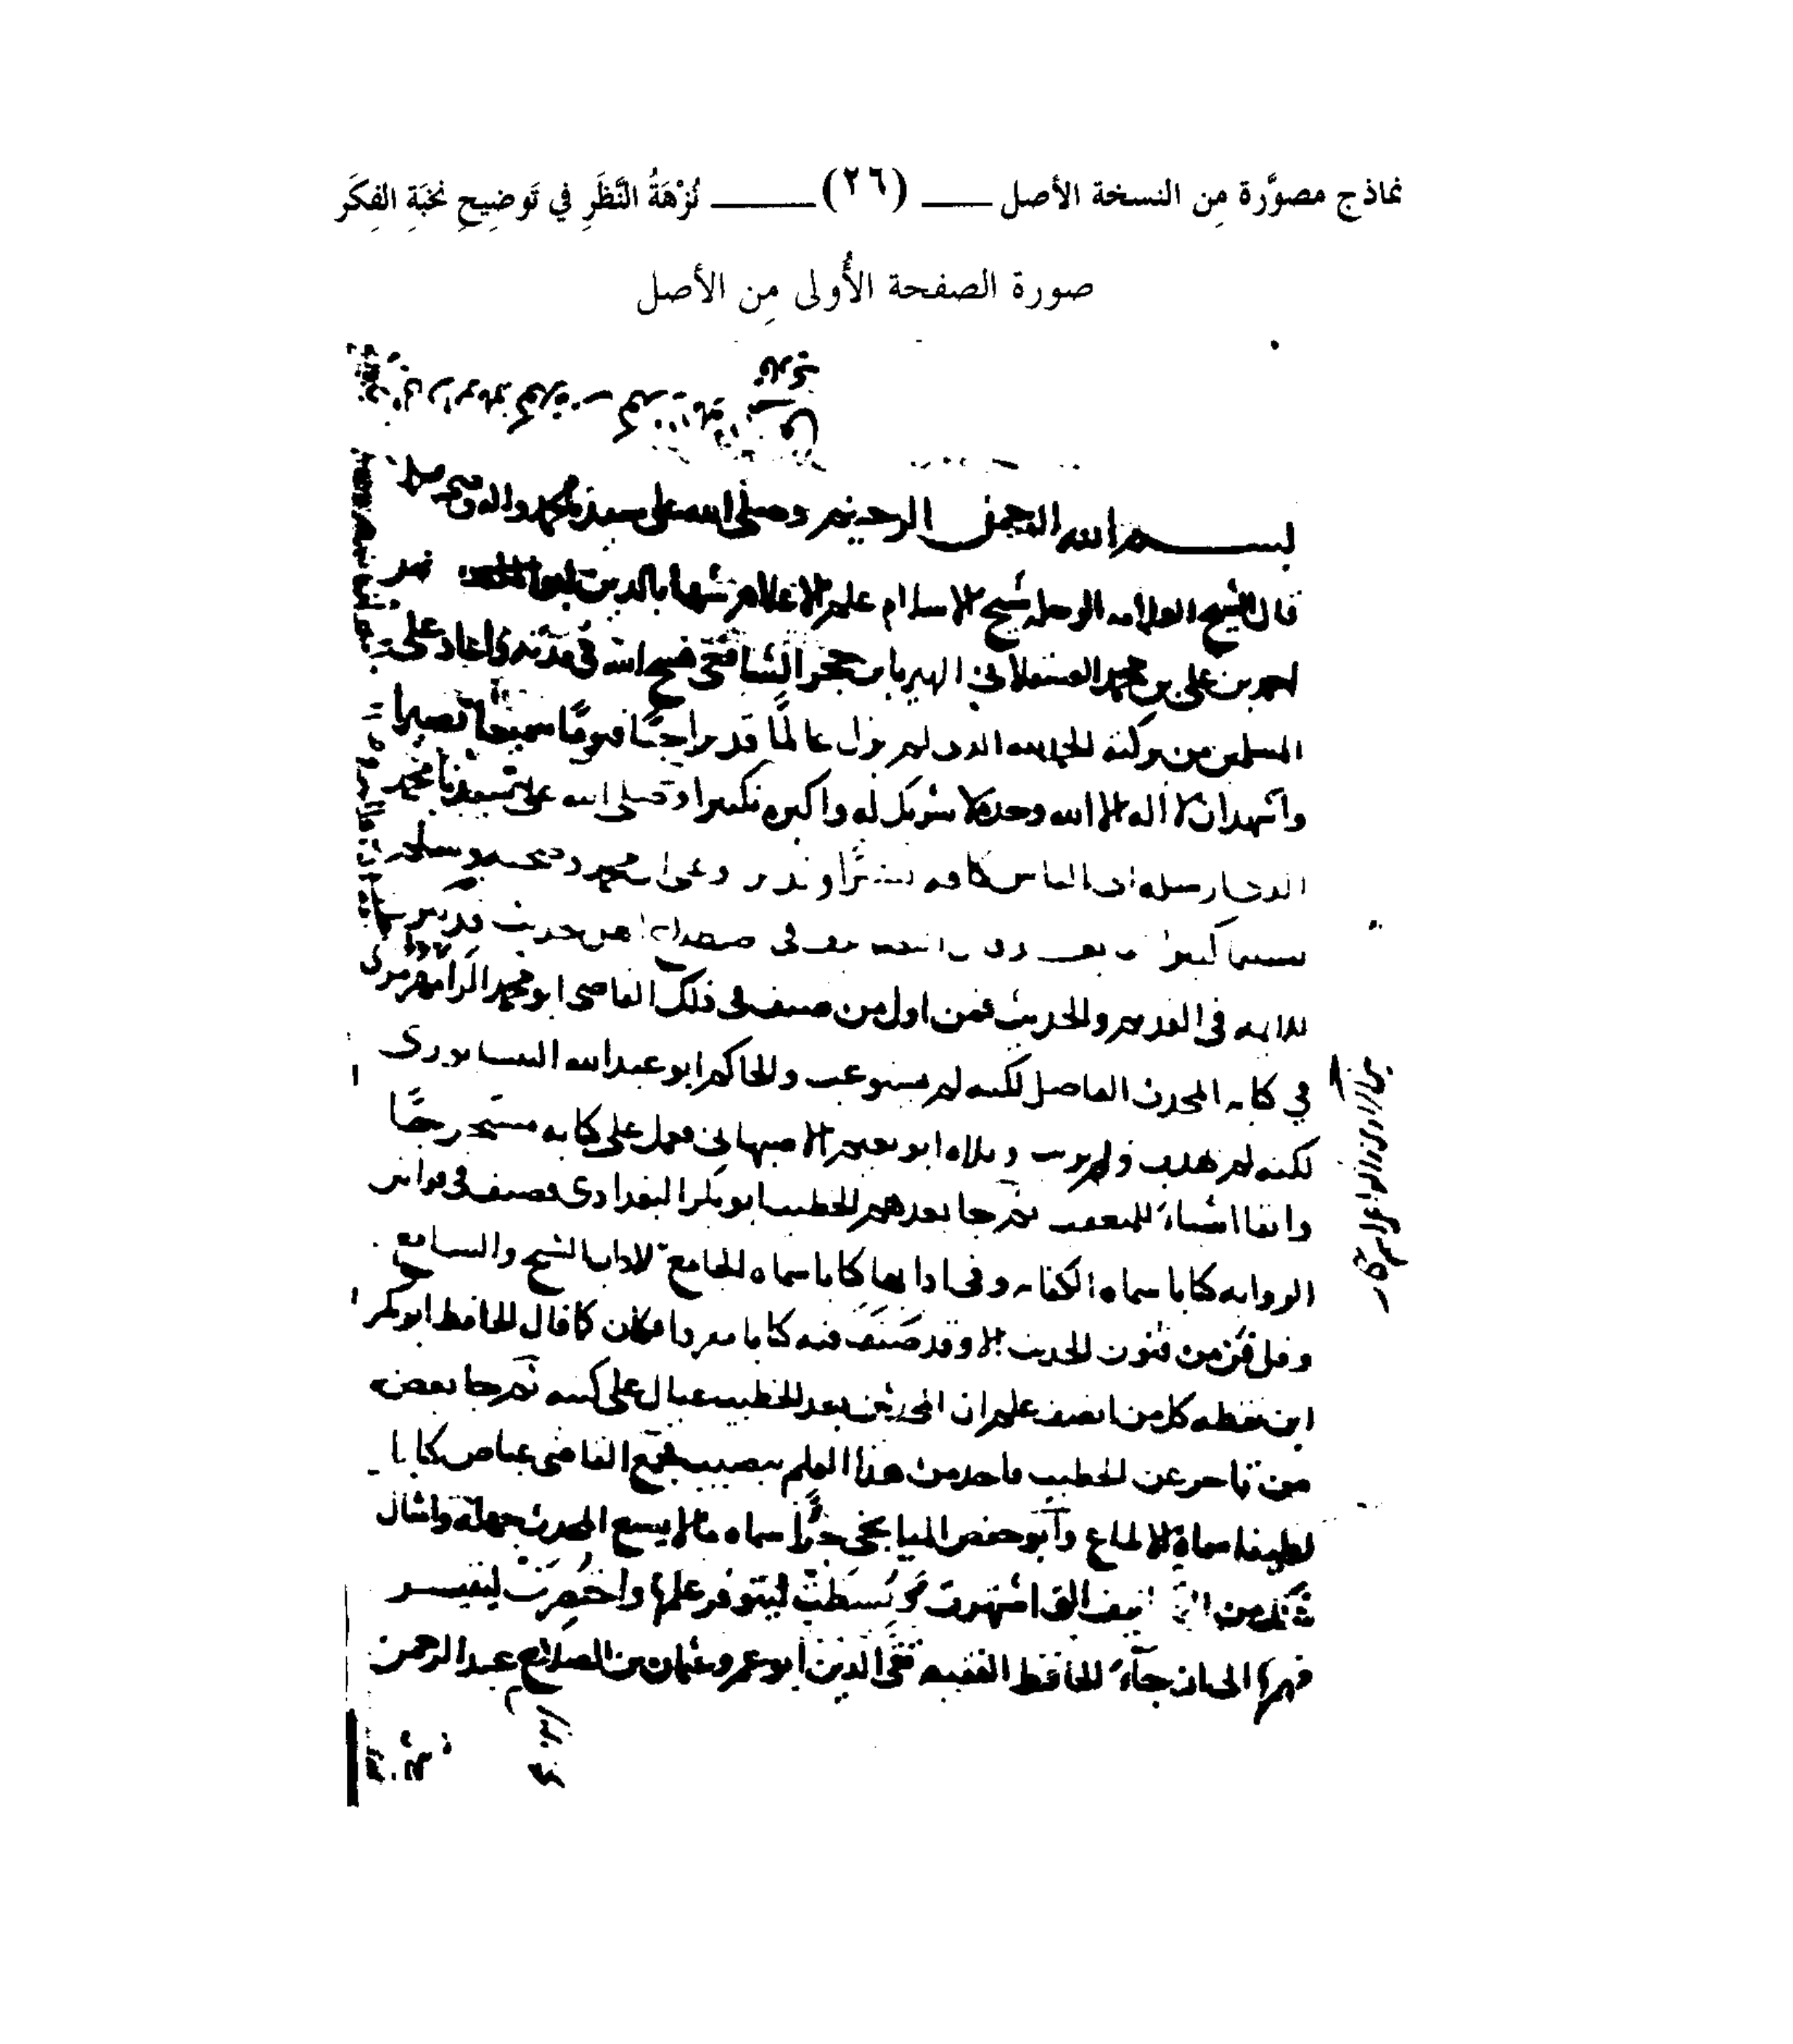 نماذج مصوَّرة مِن النسخة الأصل (٢٦) نُزْهَةُ النَّظَرِ في تَوضِيحِ نخبَةِ الفِكَر
صورة الصفحة الأُولى مِن الأصل
بسم الله الرحمن الرحيم وصلى الله على سيدنا محمد واله وصحبه وسلم
قال الشيخ العلامه الرحله شيخ الاسلام علم الاعلام شهاب الدين ابو الفضل
احمد بن علي بن محمد العسقلاني الشهير بابن حجر الشافعي فسح الله في مدته واعاد على
المسلمين من بركته الحمد لله الذى لم يزل عالمًا قديرا حيًا قيومًا سميعًا بصيرا
واشهد ان لا اله الا الله وحده لا شريك له واكبره تكبيرا وصلى الله على سيدنا محمد
الذي ارسله الى الناس كافه بشيرًا ونذيرا وعلى ال محمد وصحبه وسلم
تسليما كثيرا اما بعد فان التصانيف في اصطلاح اهل حديث قد كثرت
للايمه في القديم والحديث فمن اول من صنف في ذلك القاضي ابو محمد الرامهرمزي
في كتابه المحدث الفاصل لكنه لم يستوعب والحاكم ابو عبد الله النيسابورى
لكنه لم يهذب ولم يرتب وتلاه ابو نعيم الاصبهاني فعمل على كتابه مستخرجًا
وابقا اشياءَ للمتعقب ثم جا بعدهم الخطيب ابو بكر البغدادى فصنف في قوانين
الروايه كتابا سماه الكفايه وفي ادابها كتابا سماه الجامع لاداب الشيخ والسامع
وقل فن من فنون الحديث الا وقد صَنَفَ فيه كتابا مفردا فكان كما قال الحافظ ابو بكر
ابن نقطه كل من انصف علم ان المحدثين بعد الخطيب عيال على كتبه ثم جا بعض
من تاخر عن الخطيب فاخذ من هذا العلم بنصيب فجمع القاضي عياض كتابا
لطيفا سماه الالماع وابو حفص الميانجي جزًأ سماه ما لا يسع المحدث جهله وامثال
ذلك من التصانيف التي اشتهرت وبُسطت ليتوفر علمها واختُصِرَتْ ليتيسر
فهمها الى ان جآءَ الحافظ الفقيه تقي الدين ابو عمرو عثمان بن الصلاح عبد الرحمن